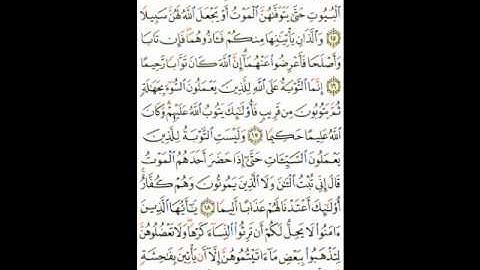 الْبُيُوتِ حَتَّىٰ يَتَوَفَّىٰهُنَّ الْمَوْتُ أَوْ يَجْعَلَ اللَّهُ لَهُنَّ سَبِيلًا
﴿١٥﴾ وَالَّذَانِ يَأْتِيَٰنِهَا مِنكُمْ فَـَٔاذُوهُمَا فَإِن تَابَا
وَأَصْلَحَا فَأَعْرِضُوا عَنْهُمَا إِنَّ اللَّهَ كَانَ تَوَّابًا رَّحِيمًا
﴿١٦﴾ إِنَّمَا التَّوْبَةُ عَلَى اللَّهِ لِلَّذِينَ يَعْمَلُونَ السُّوٓءَ بِجَهَٰلَةٍ
ثُمَّ يَتُوبُونَ مِن قَرِيبٍ فَأُو۟لَٰٓئِكَ يَتُوبُ اللَّهُ عَلَيْهِمْ وَكَانَ
اللَّهُ عَلِيمًا حَكِيمًا ﴿١٧﴾ وَلَيْسَتِ التَّوْبَةُ لِلَّذِينَ
يَعْمَلُونَ السَّيِّـَٔاتِ حَتَّىٰٓ إِذَا حَضَرَ أَحَدَهُمُ الْمَوْتُ
قَالَ إِنِّي تُبْتُ الْـَٰٔنَ وَلَا الَّذِينَ يَمُوتُونَ وَهُمْ كُفَّارٌ
أُو۟لَٰٓئِكَ أَعْتَدْنَا لَهُمْ عَذَابًا أَلِيمًا ﴿١٨﴾ يَٰٓأَيُّهَا الَّذِينَ
ءَامَنُوا لَا يَحِلُّ لَكُمْ أَن تَرِثُوا النِّسَآءَ كَرْهًا وَلَا تَعْضُلُوهُنَّ
لِتَذْهَبُوا بِبَعْضِ مَآ ءَاتَيْتُمُوهُنَّ إِلَّآ أَن يَأْتِينَ بِفَٰحِشَةٍ